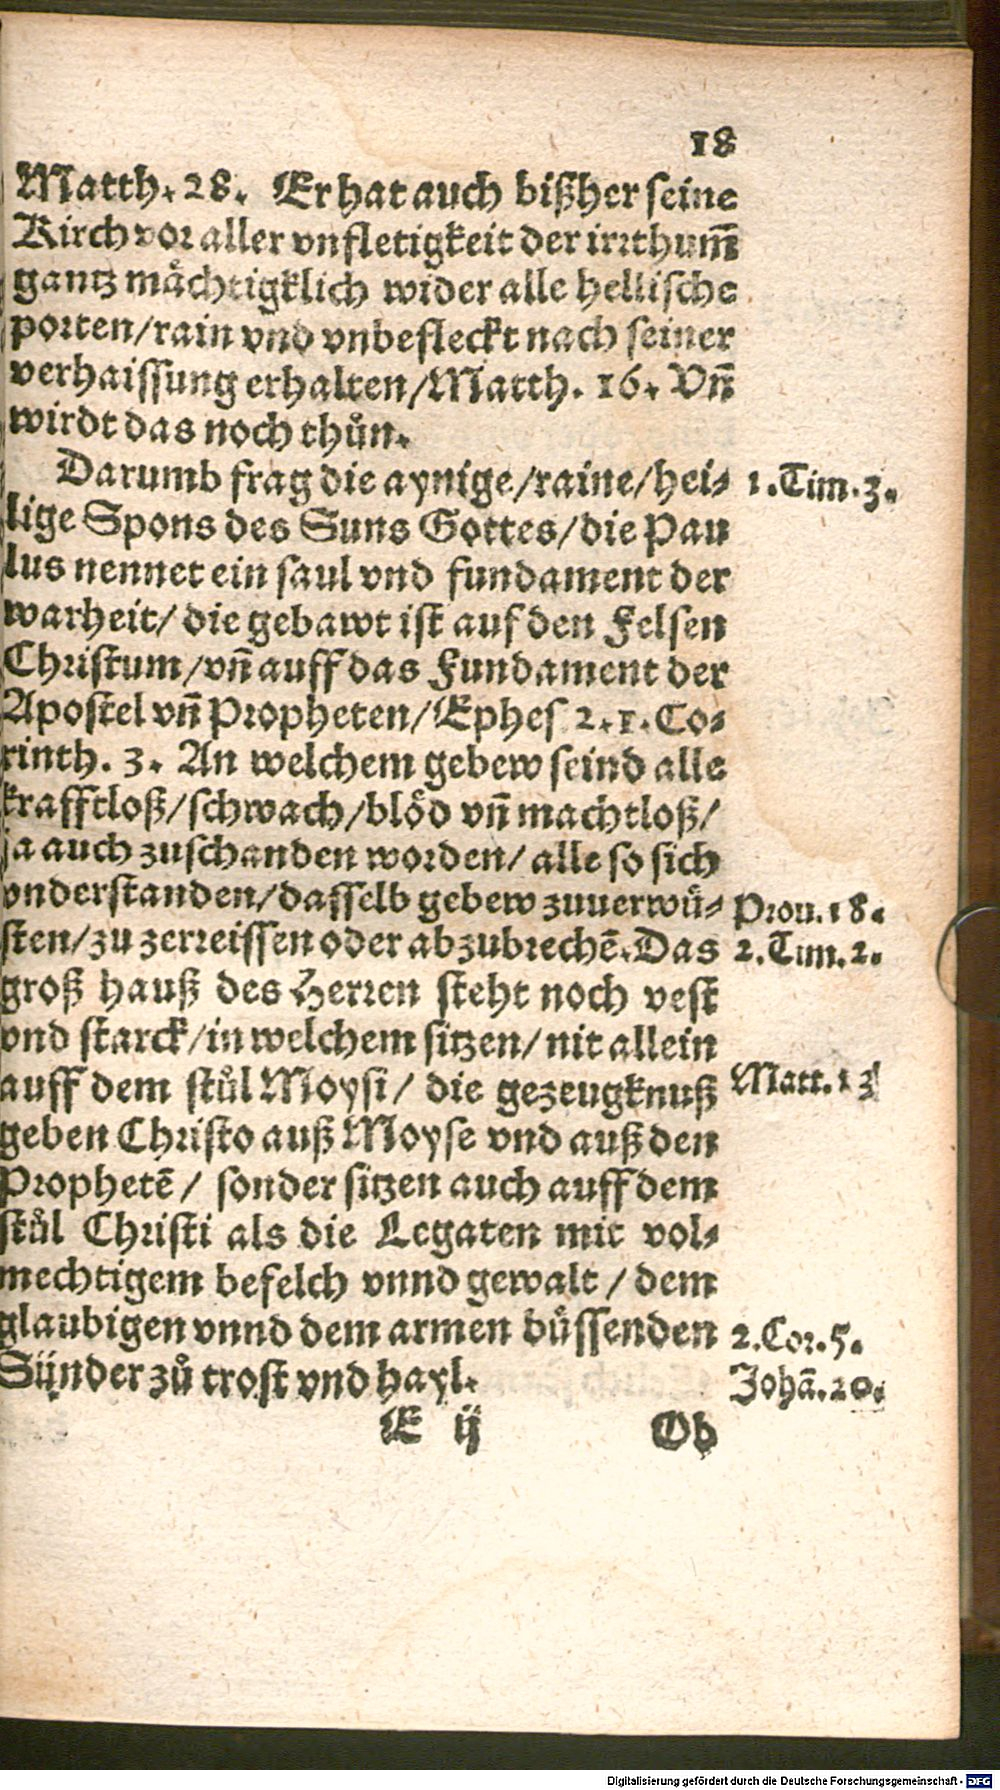 18
Matth. 28. Er hat auch bißher seine
Kirch vor aller vnfletigkeit der irrthum̄
gantz mächtigklich wider alle hellische
porten/rain vnd vnbefleckt nach seiner
verhaissung erhalten/Matth. 16. Vn̄
wirdt das noch thůn.
Darumb frag die aynige/raine/hei⸗ 1. Tim. 3.
lige Spons des Suns Gottes/die Pau
lus nennet ein saul vnd fundament der
warheit/ die gebawt ist auf den Felsen
Christum/vn̄ auff das Fundament der
Apostel vn̄ Propheten/Ephes 2. 1. Co⸗
rinth. 3. An welchem gebew seind alle
krafftloß/schwach/blöd vn̄ machtloß/
ja auch zuschanden worden/ alle so sich
vnderstanden/dasselb gebew zuuerwü⸗ Prou. 18.
sten/zu zerreissen oder abzubrechē. Das 2. Tim. 2.
groß hauß des Herren steht noch vest
vnd starck/in welchem sitzen/ nit allein
auff dem stůl Moysi/ die gezeugknuß Matt. 13
geben Christo auß Moyse vnd auß den
Prophetē/ sonder sitzen auch auff dem
stůl Christi als die Legaten mit vol⸗
mechtigem befelch vnnd gewalt / dem
glaubigen vnnd dem armen büssenden 2. Cor. 5.
Sünder zů trost vnd hayl. Johā. 20.
E ij Ob
Digitalisierung gefördert durch die Deutsche Forschungsgemeinschaft - DFG